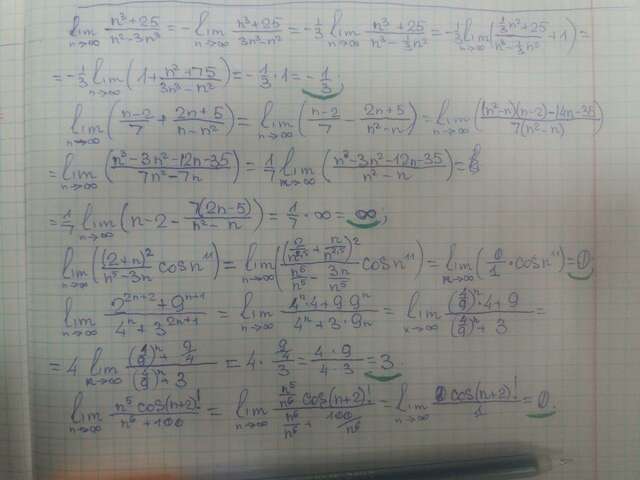 lim n→∞ (n³+25)/(n²-3n³) = - lim n→∞ (n³+25)/(3n³-n²) = -1/3 lim n→∞ (n³+25)/(n³-1/3n²) = -1/3 lim n→∞ ((1/3n²+25)/(n³-1/3n²) + 1) =
= -1/3 lim n→∞ (1 + (n²+75)/(3n³-n²)) = -1/3 · 1 = -1/3;
lim n→∞ ((n-2)/7 + (2n+5)/(n-n²)) = lim n→∞ ((n-2)/7 - (2n+5)/(n²-n)) = lim n→∞ (((n²-n)(n-2)-14n-35)/(7(n²-n)))
= lim n→∞ ((n³-3n²-12n-35)/(7n²-7n)) = 1/7 lim n→∞ ((n³-3n²-12n-35)/(n²-n)) =
= 1/7 lim n→∞ (n-2 - 7(2n-5)/(n²-n)) = 1/7 · ∞ = ∞;
lim n→∞ ((2+n)²/(n⁵-3n) cos n¹¹) = lim n→∞ ((2/n^2,5 + n/n^2,5)²/(n⁵/n⁵ - 3n/n⁵) cos n¹¹) = lim n→∞ (0/1 · cos n¹¹) = 0
lim n→∞ (2^(2n+2)+9^(n+1))/(4^n+3^(2n+1)) = lim n→∞ (4^n·4+9·9^n)/(4^n+3·9n) = lim n→∞ ((4/9)^n·4+9)/((4/9)^n+3) =
= 4 lim n→∞ ((4/9)^n+9/4)/((4/9)^n+3) = 4 · (9/4)/3 = (4·9)/(4·3) = 3.
lim n→∞ (n⁵ cos(n+2)!)/(n⁶+100) = lim n→∞ (n⁵/n⁶ cos(n+2)!)/(n⁶/n⁶ + 100/n⁶) = lim n→∞ (0 cos(n+2)!)/1 = 0.